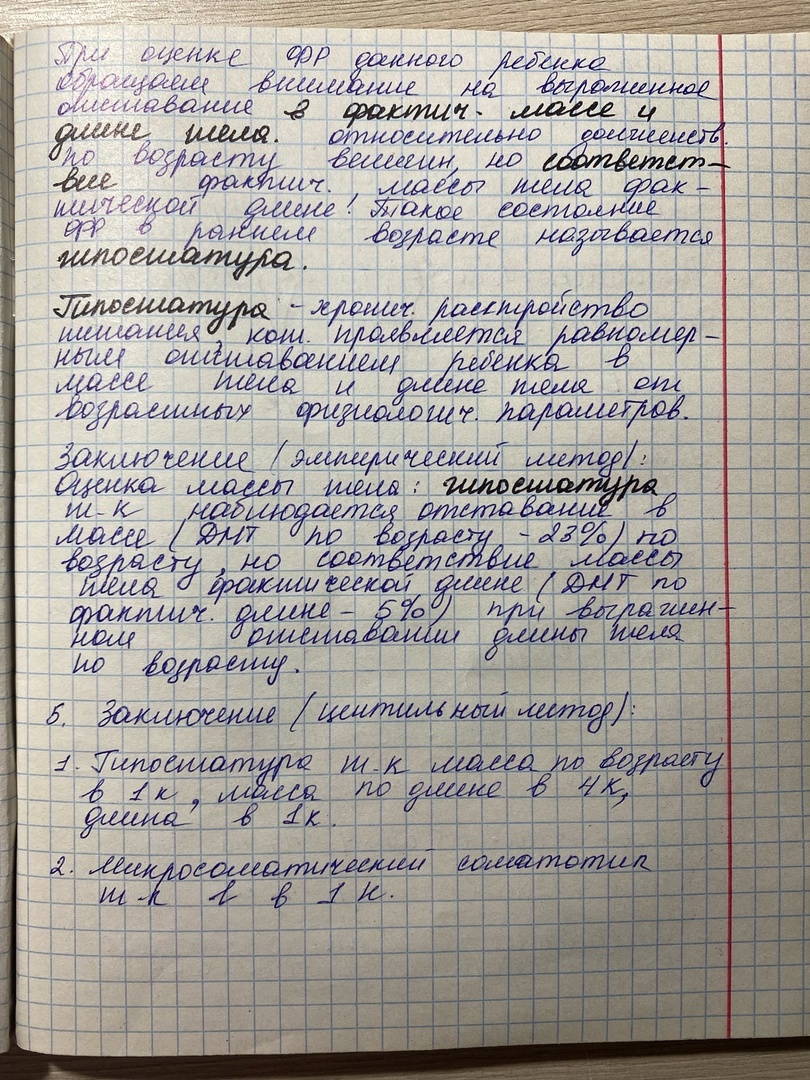 При оценке ФР данного ребенка
обращаем внимание на выраженное
отставание в фактич. массе и
длине тела. относительно долженств.
по возрасту величин, но соответст-
вие фактич. массы тела фак-
тической длине! Такое состояние
ФР в раннем возрасте называется
гипостатура.
Гипостатура - хронич. расстройство
питания, кот. проявляется равномер-
ным отставанием ребенка в
массе тела и длине тела от
возрастных физиологич. параметров.
Заключение (эмпирический метод):
Оценка массы тела: гипостатура
т-к наблюдается отставание в
массе (ДМТ по возрасту - 23%) по
возрасту, но соответствие массы
тела фактической длине (ДМТ по
фактич. длине - 5%) при выражен-
ном отставании длины тела
по возрасту.
5. Заключение (центильный метод):
1. Гипостатура т.к масса по возрасту
в 1к, масса по длине в 4к,
длина в 1к.
2. Микросоматический соматотип
т-к l в 1 к.